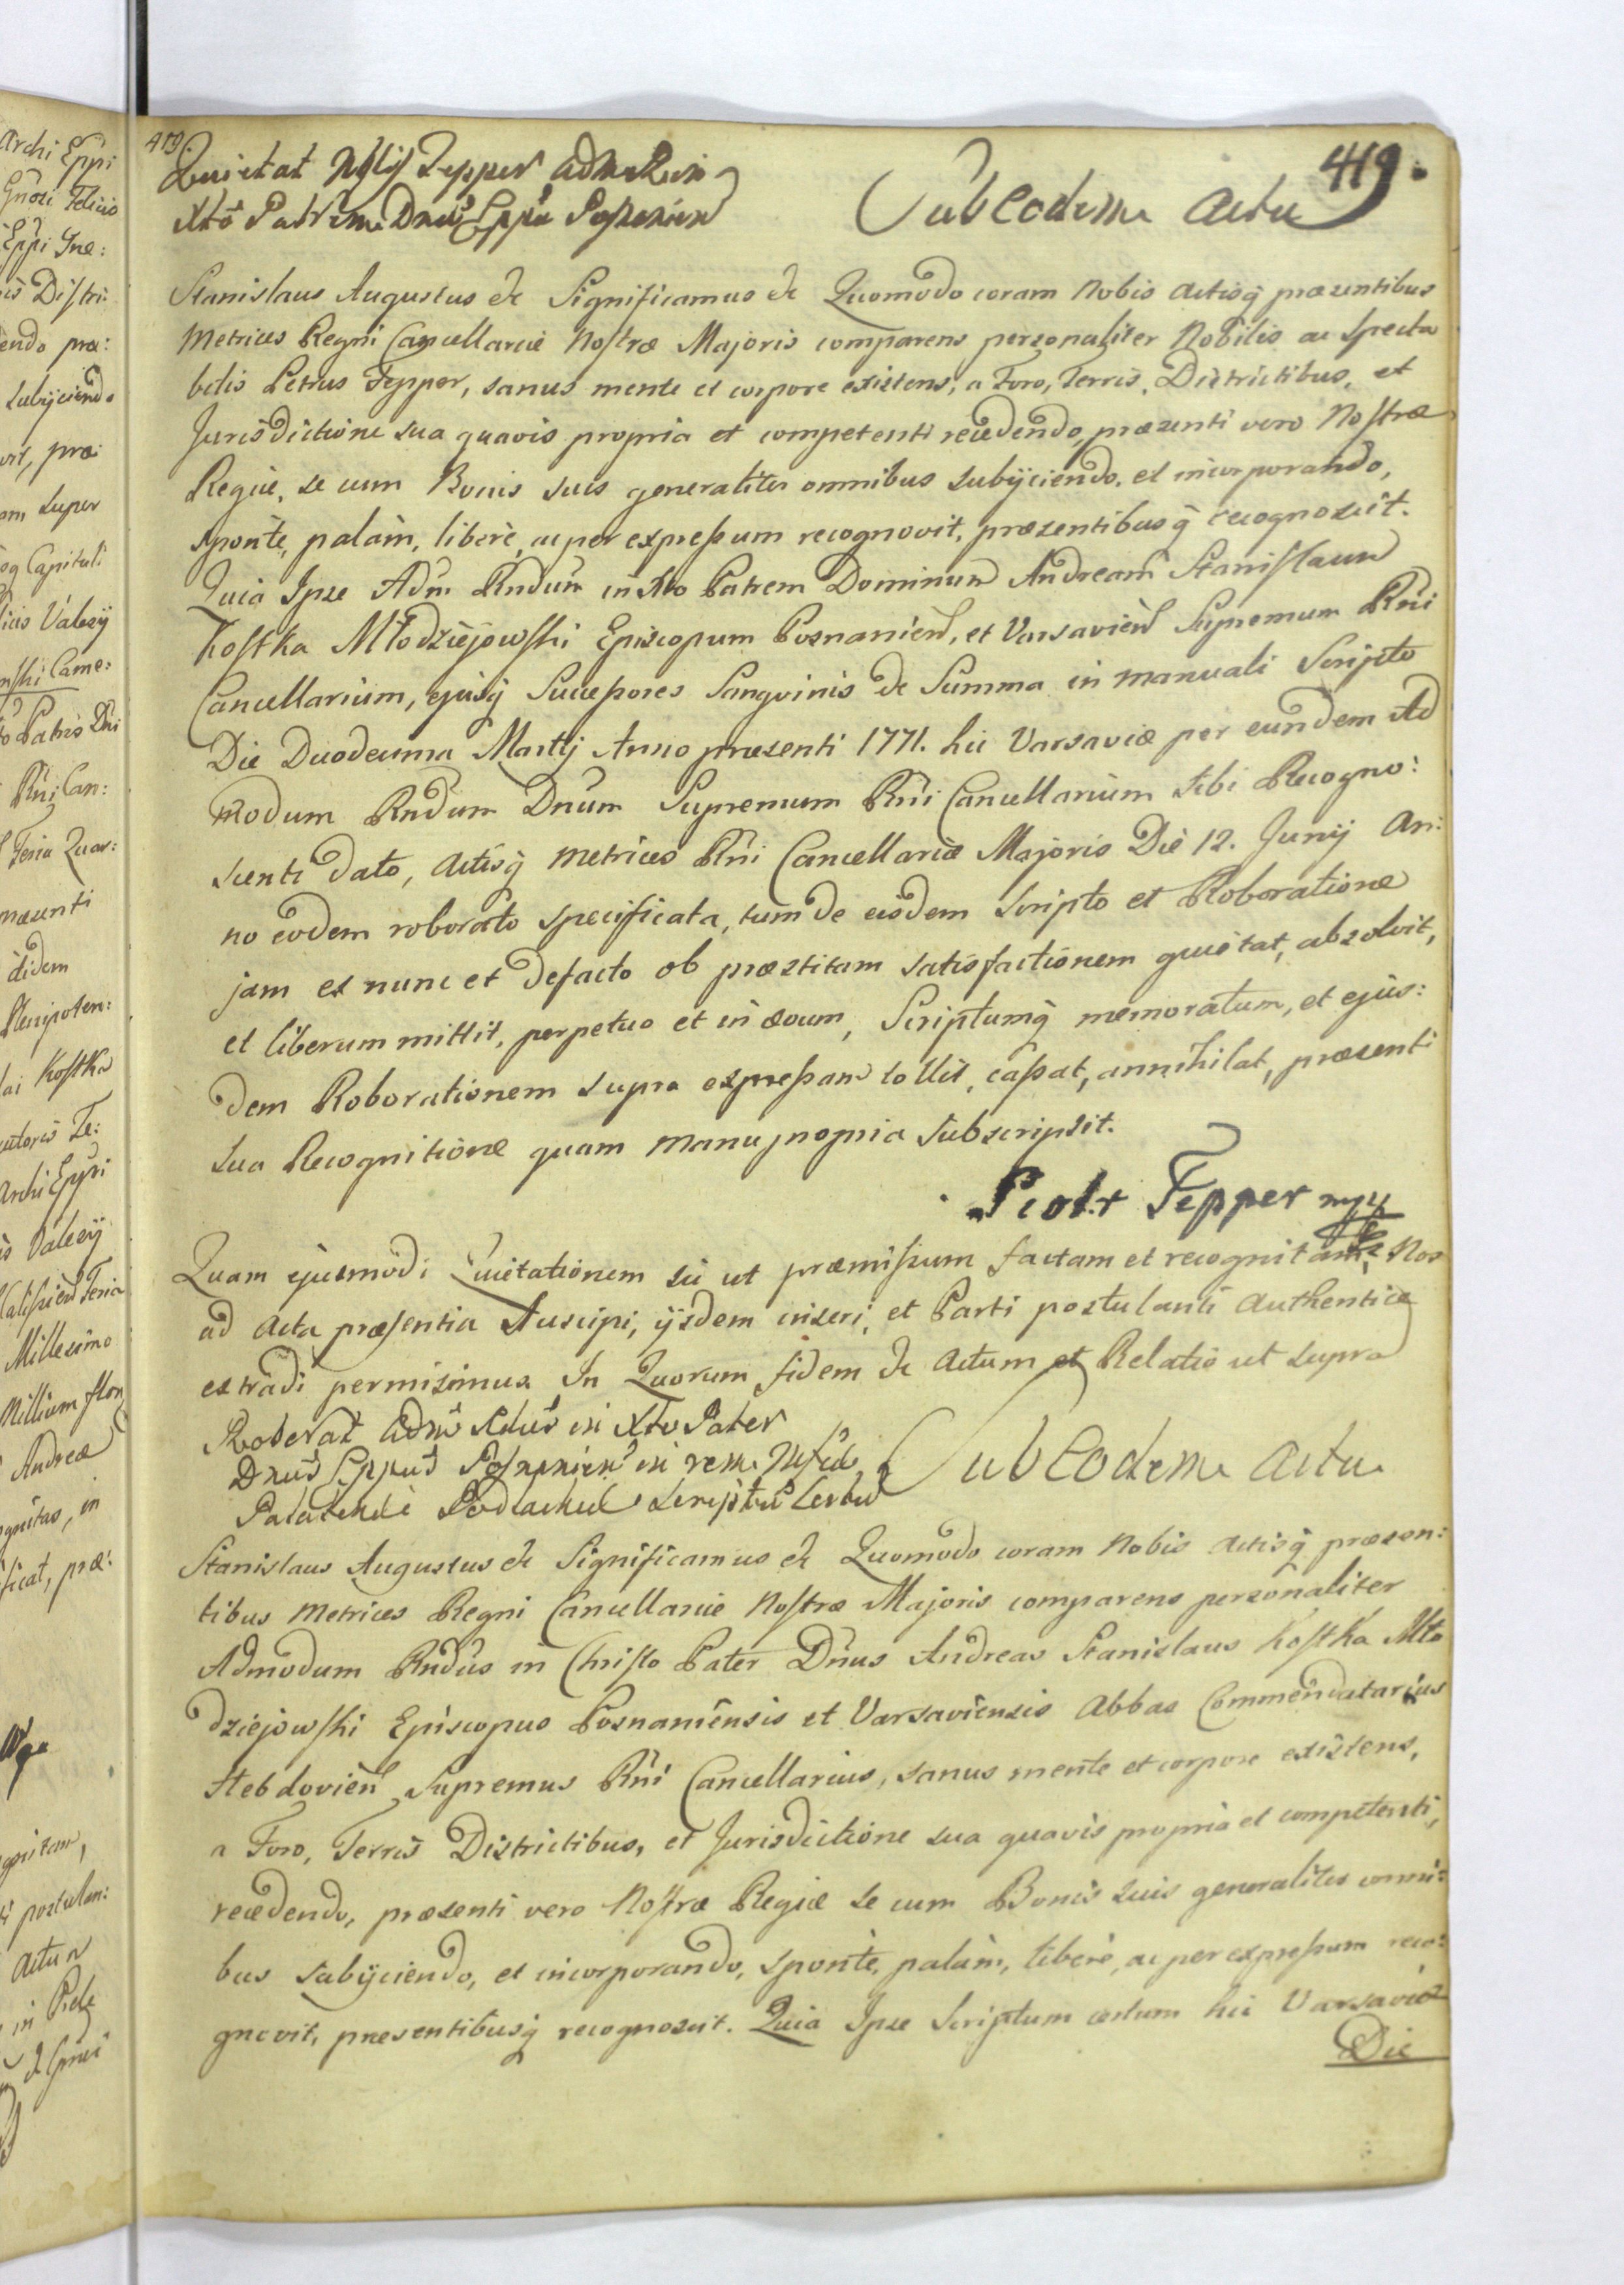 419.
419.
Quietat Nblis Tepper Adm Rndm in
Xto Patrem Dnum Eppum Posnanien
Sub Eodem Actu
Stanislaus Augustus &c Significamus &c Quomodo coram Nobis Actisq præsentibus
Metrices Regni Cancellariæ Nostræ Majoris comparens personaliter Nobilis ac Specta
bilis Petrus Tepper, sanus mente et corpore existens, a Foro, Terris, Districtibus, et
Jurisdictione sua quavis propria et competenti recedendo, præsenti vero Nostræ
Regiæ, se cum Bonis suis generaliter omnibus subijciendo, et incorporando,
sponte, palàm, liberè, ac per expressum recognovit, præsentibusq recognoscit.
Quia Ipse Adm Rndum in Xto Patrem Dominum Andream Stanislaum
Kostka Młodziejowski Episcopum Posnanien, et Varsavien Supremum Rni
Cancellarium, ejusq Successores Sangvinis de Summa in manuali Scripto
Die Duodecima Martij Anno præsenti 1771. hic Varsaviæ per eundem Ad
modum Rndum Dnum Supremum Rni Cancellarium sibi Recogno:
scenti dato, Actisq Metrices Rni Cancellariæ Majoris Die 12. Junij An:
no eodem roborato specificata, tum de eodem Scripto et Roboratione
jam ex nunc et defacto ob præstitam satisfactionem quietat, absolvit,
et liberum mittit, perpetuo et in ævum, Scriptumq memoratum, et ejus:
dem Roborationem supra expressam tollit, cassat, annihilat, præsenti
sua Recognitione quam manu propria subscripsit.
Piotr Tepper mpp
Quam ejusmodi Quietationem sic ut præmissum factam et recognitam, Nos
ad Acta præsentia Suscipi, ijsdem inseri, et Parti postulanti authentice
extradi permisimus. In Quorum fidem &c Actum et Relatio ut supra
Roborat Adm Rdus in Xto Pater
Dnus Eppus Posnanien in rem Mfci
Palatinidæ Podlachiæ Scriptum Certum
Sub Eodem Actu
Stanislaus Augustus &c Significamus &c Quomodo coram Nobis Actisq præsen:
tibus Metrices Regni Cancellariæ Nostræ Majoris comparens personaliter
Admodum Rndus in Christo Pater Dnus Andreas Stanislaus Kostka Mło
dziejowski Episcopus Posnaniensis et Varsaviensis Abbas Commendatarius
Hebdovien Supremus Rni Cancellarius, sanus mente et corpore existens,
a Foro, Terris Districtibus, et Jurisdictione sua quavis propria et competenti,
recedendo, præsenti vero Nostræ Regiæ se cum Bonis suis generaliter omni:
bus subijciendo, et incorporando, sponte, palàm, liberè, ac per expressum reco:
gnovit, præsentibusq recognoscit. Quia Ipse Scriptum certum hic Varsaviæ
Die